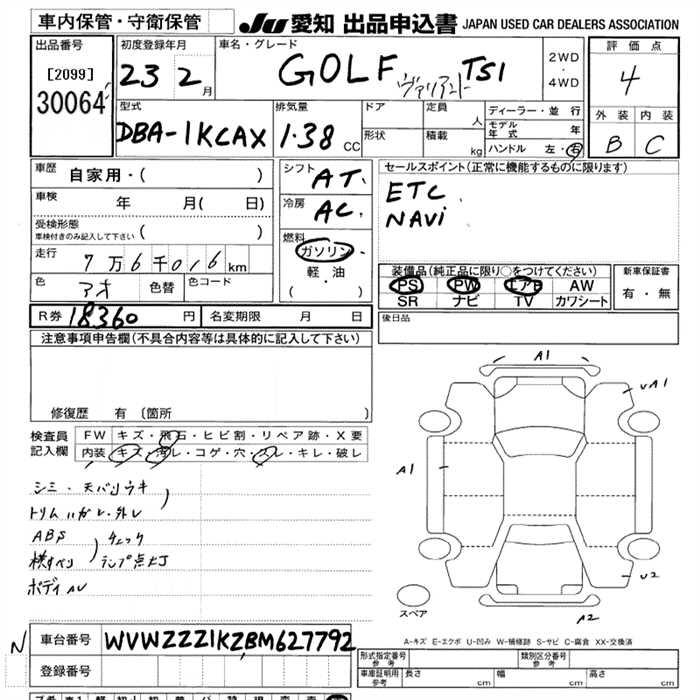 車内保管・守衛保管 JU 愛知 出品申込書 JAPAN USED CAR DEALERS ASSOCIATION
出品番号 [2099] 30064
初度登録年月 23 2 月
車名・グレード GOLF ヴァリアント TSI
2WD ・ 4WD
評価点 4
外装 B 内装 C
型式 DBA-1KCAX
排気量 1.38 CC
ドア 形状
定員 人
積載 kg
ディーラー・並行
モデル年式 年
ハンドル 左・右
車歴 自家用・( )
車検 年 月( 日)
受検形態 車検付きのみ記入して下さい ( )
走行 7万6千016km
色 アオ 色替 色コード
シフト AT
冷房 AC
燃料 ガソリン 軽・油 ( ・ )
セールスポイント(正常に機能するものに限ります)
ETC
NAVi
装備品(純正品に限り○をつけてください)
PS PW エアB AW
SR ナビ TV カワシート
新車保証書 有・無
R券 18360 円 名変期限 月 日
後日品
注意事項申告欄(不具合内容等は具体的に記入して下さい)
修復歴 有〔箇所 〕
検査員記入欄
FW キズ・飛石・ヒビ割・リペア跡・X要
内装 キズ・汚レ・コゲ・穴・スレ・キレ・破レ
シミ・天バリウキ
トリムハガレ・外レ
ABS
横すべり
チェック
ランプ点灯
ボディAU
A1
UA1
A1
U2
A2
スペア
A-キズ E-エクボ U-凹み W-補修跡 S-サビ C-腐食 XX-交換済
N 車台番号 WVWZZZ1KZBM627792
登録番号
形式指定番号 参考 類別区分番号 参考
車庫証明用 参考 長さ cm 幅 cm 高さ cm